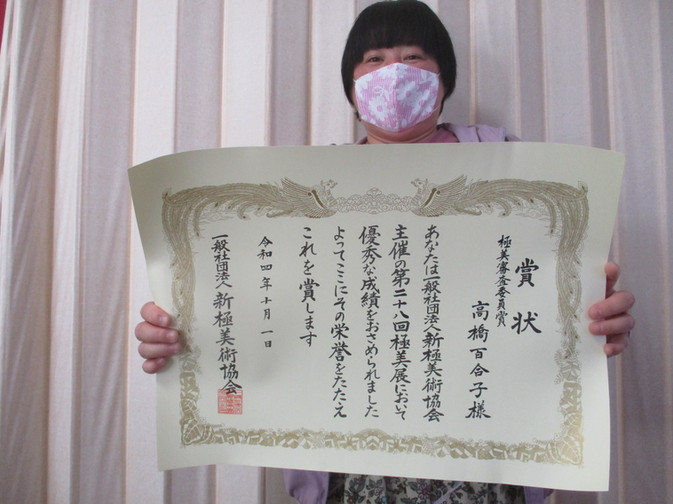 賞状
極美審査委員賞
高橋百合子様
あなたは一般社団法人新極美術協会
主催の第二十八回極美展において
優秀な成績をおさめられました
よってここにその栄誉をたたえ
これを賞します
令和四年十月一日
一般社団法人新極美術協会